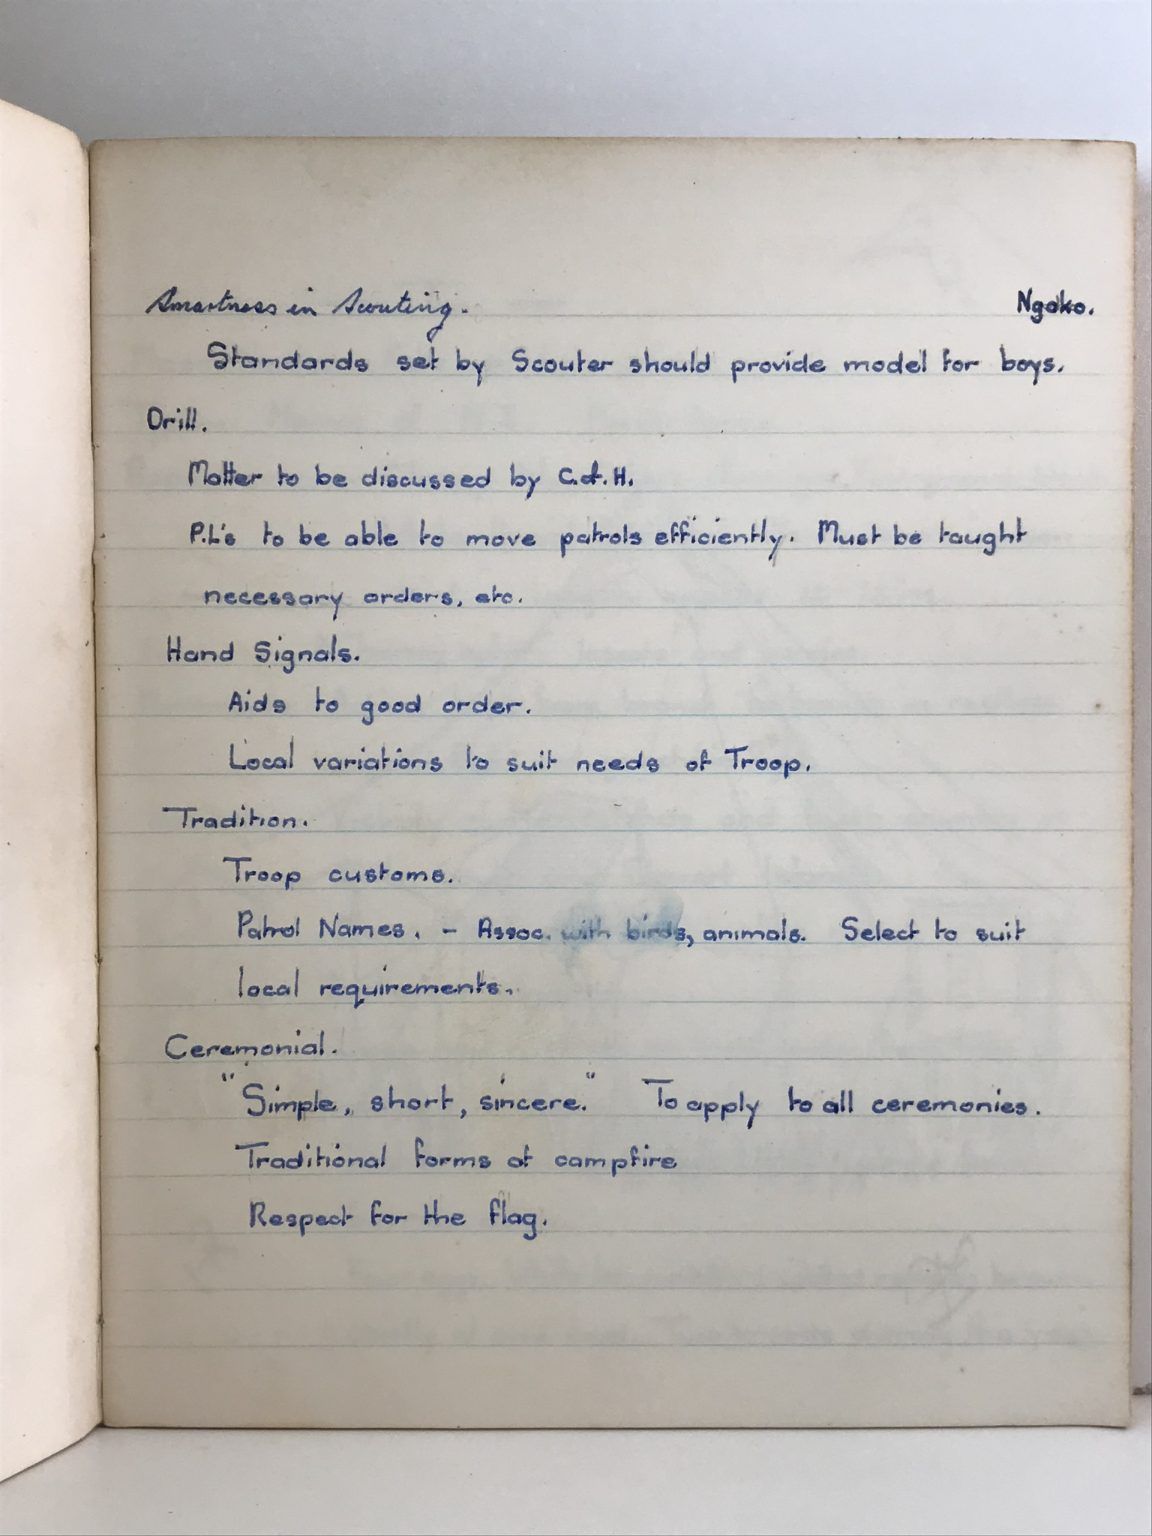 Smartness in Scouting. Ngoko.
Standards set by Scouter should provide model for boys.
Drill.
Matter to be discussed by C.of.H.
P.L's to be able to move patrols efficiently. Must be taught
necessary orders, etc.
Hand Signals.
Aids to good order.
Local variations to suit needs of Troop.
Tradition.
Troop customs.
Patrol Names. - Assoc. with birds, animals. Select to suit
local requirements.
Ceremonial.
"Simple, short, sincere." To apply to all ceremonies.
Traditional forms of campfire
Respect for the flag.